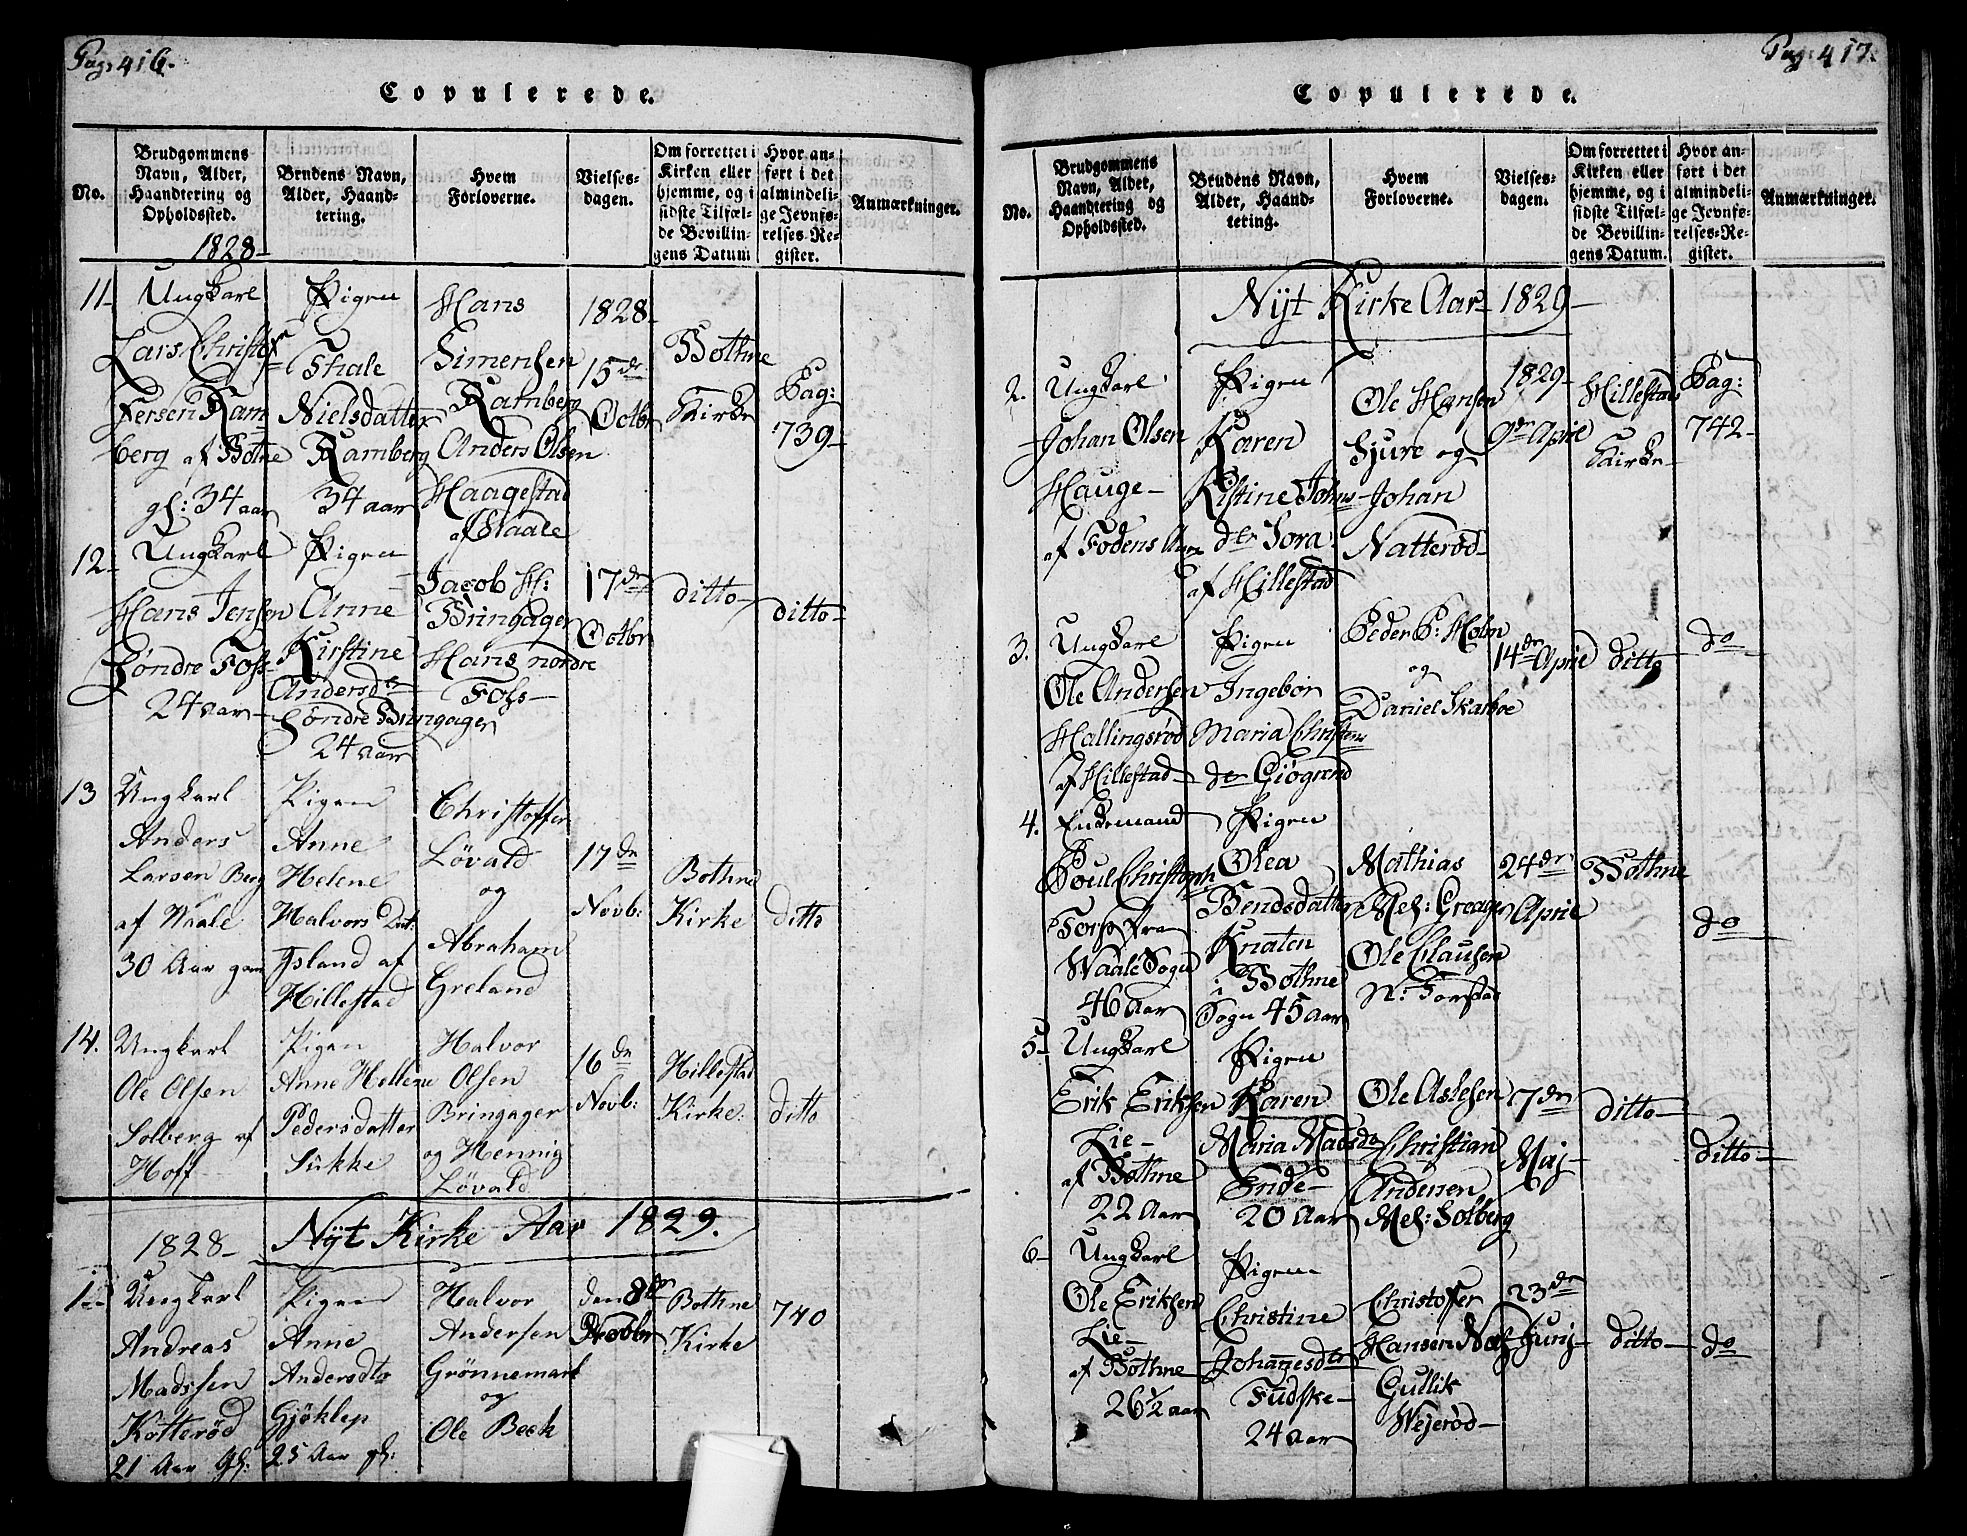 Pag: 416.
Copulerede.
No.
Brudgommens
Navn, Alder,
Haandtering og
Opholdssted.
1828-
Brudens Navn,
Alder, Haand-
tering.
Hvem
Forloverne.
Vielses-
dagen.
Om forrettet i
Kirken eller
hjemme, og i
sidste Tilfæl-
de Bevillin-
gens Datum
Hvor an-
ført i det
almindeli-
ge Jevnfø-
relses-Re-
gister.
Anmærkninger.
11-
Ungkarl
Lars Christof
fersen Ram
berg af Botne
gl: 34 aar
Pigen
Thale
Nielsdatter
Ramberg
34 aar
Hans
Simensen
Ramberg
Anders Olsen
Haagestad
af Vaale
1828-
15de
Octbr
Bothne
Kirke
Pag:
739-
12-
Ungkarl
Hans Jensen
Søndre Foss
24 aar-
Pigen
Anne
Kirstine
Andersdr
Søndre Bringager
24 aar
Jacob H:
Bringager
Hans nordre
Foss-
17de
Octbr
ditto-
ditto-
13
Ungkarl
Anders
Larsen Berg
af Waale
30 Aar gam
Pigen
Anne
Helene
Halvors Dat.
Island af
Hillestad
Christoffer
Løvald
og
Abraham
Greland
17de
Novb:
Bothne
Kirke
ditto
14.
Ungkarl
Ole Olsen
Solberg af
Hoff
Pigen
Anne Hellene
Pedersdatter
Sukke
Halvor
Olsen
Bringager
og Hennig
Løvald
16de
Novb:
Hillestad
Kirke:
ditto
1828-
Nyt Kirke Aar 1829.
1
Ungkarl
Andreas
Madssen
Kotterød
21 Aar gl:
Pigen
Anne
Andersdtr
Gjøklep
25 Aar gl:
Halvor
Andersen
Grønnemark
og
Ole Bech
den 8de
Novbr
Bothne
Kirke
740
Pag: 417.
Copulerede.
No.
Brudgommens
Navn, Alder,
Haandtering og
Opholdssted.
Brudens Navn,
Alder, Haand-
tering.
Hvem
Forloverne.
Vielses-
dagen.
Om forrettet i
Kirken eller
hjemme, og i
sidste Tilfæl-
de Bevillin-
gens Datum.
Hvor an-
ført i det
almindeli-
ge Jevnfø-
relses-Re-
gister.
Anmærkninger.
Nyt Kirke Aar 1829-
2.
Ungkarl
Johan Olsen
Hauge-
Pigen
Karen
Kistine Johns
dtr Sora
af Hillestad
Ole Hansen
Sjure og
Johan
Natterød-
1829-
9de April
Hillestad
Kirke-
Pag:
742-
3.
Ungkarl
Ole Andersen
Hallingsrød
af Hillestad-
Pigen
Ingebor
Maria Christens
dtr Giøgrend
Peder P: Holm
og
Daniel Skarboe
14de April
ditto
do
4.
Enkemand
Poul Christoph
Torp fra
Waale Sogn
46 Aar
Pigen
Olea
Bendsdatter
Knaten
i Bothne
Sogn 45 Aar
Mathias
Mel: Greager
Ole Clausen
N: Forstad
24de
April
Bothne
do
5-
Ungkarl
Erik Eriksen
Lie-
af Bothne
22 Aar
Pigen
Karen
Maria Madsdr
Ende-
20 Aar
Ole Aslesen
Christian
Andersen
Mel: Solberg
7de
Maj-
ditto-
ditto-
6-
Ungkarl
Ole Eriksen
Lie-
af Bothne
26 1/2 aar
Pigen
Christine
Johannesdtr
Fudske-
24 aar
Christoffer
Hansen
Gullik
Wejerød-
23de
Junj-
ditto-
do